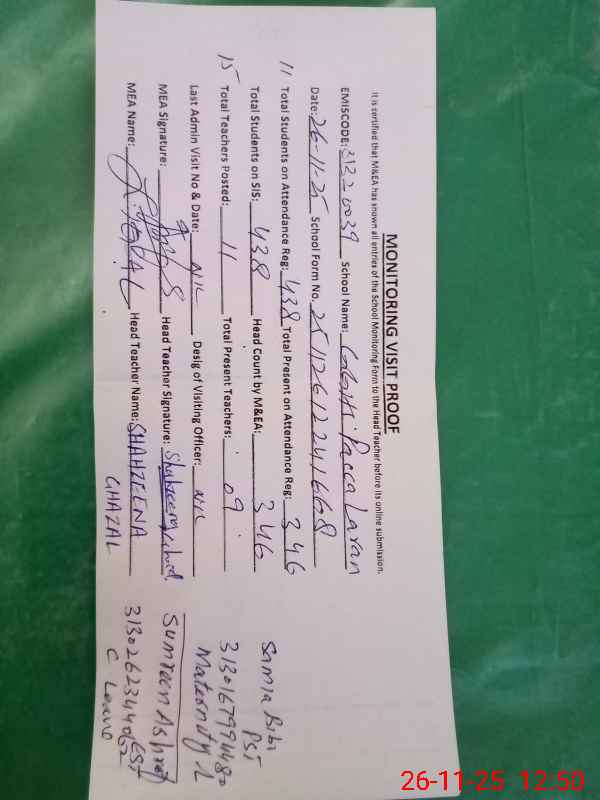 MONITORING VISIT PROOF
It is certified that M&EA has shown all entries of the School Monitoring Form to the Head Teacher before its online submission.
EMISCODE: 31220039 School Name: Pacca Laran
Date: 26-11-25 School Form No. 251126122241668
11 Total Students on Attendance Reg: 438 Total Present on Attendance Reg: 346
Total Students on SIS: 438 Head Count by M&EA: 346
15 Total Teachers Posted: 11 Total Present Teachers: 09
Last Admin Visit No & Date: NIL Desig of Visiting Officer: NIL
MEA Signature: Head Teacher Signature:
MEA Name: Head Teacher Name: SHAHZEENA
GHAZAL
Samia Bibi
PST
Maternity L
Sumreen Ashraf
EST
C Leave
26-11-25 12:50